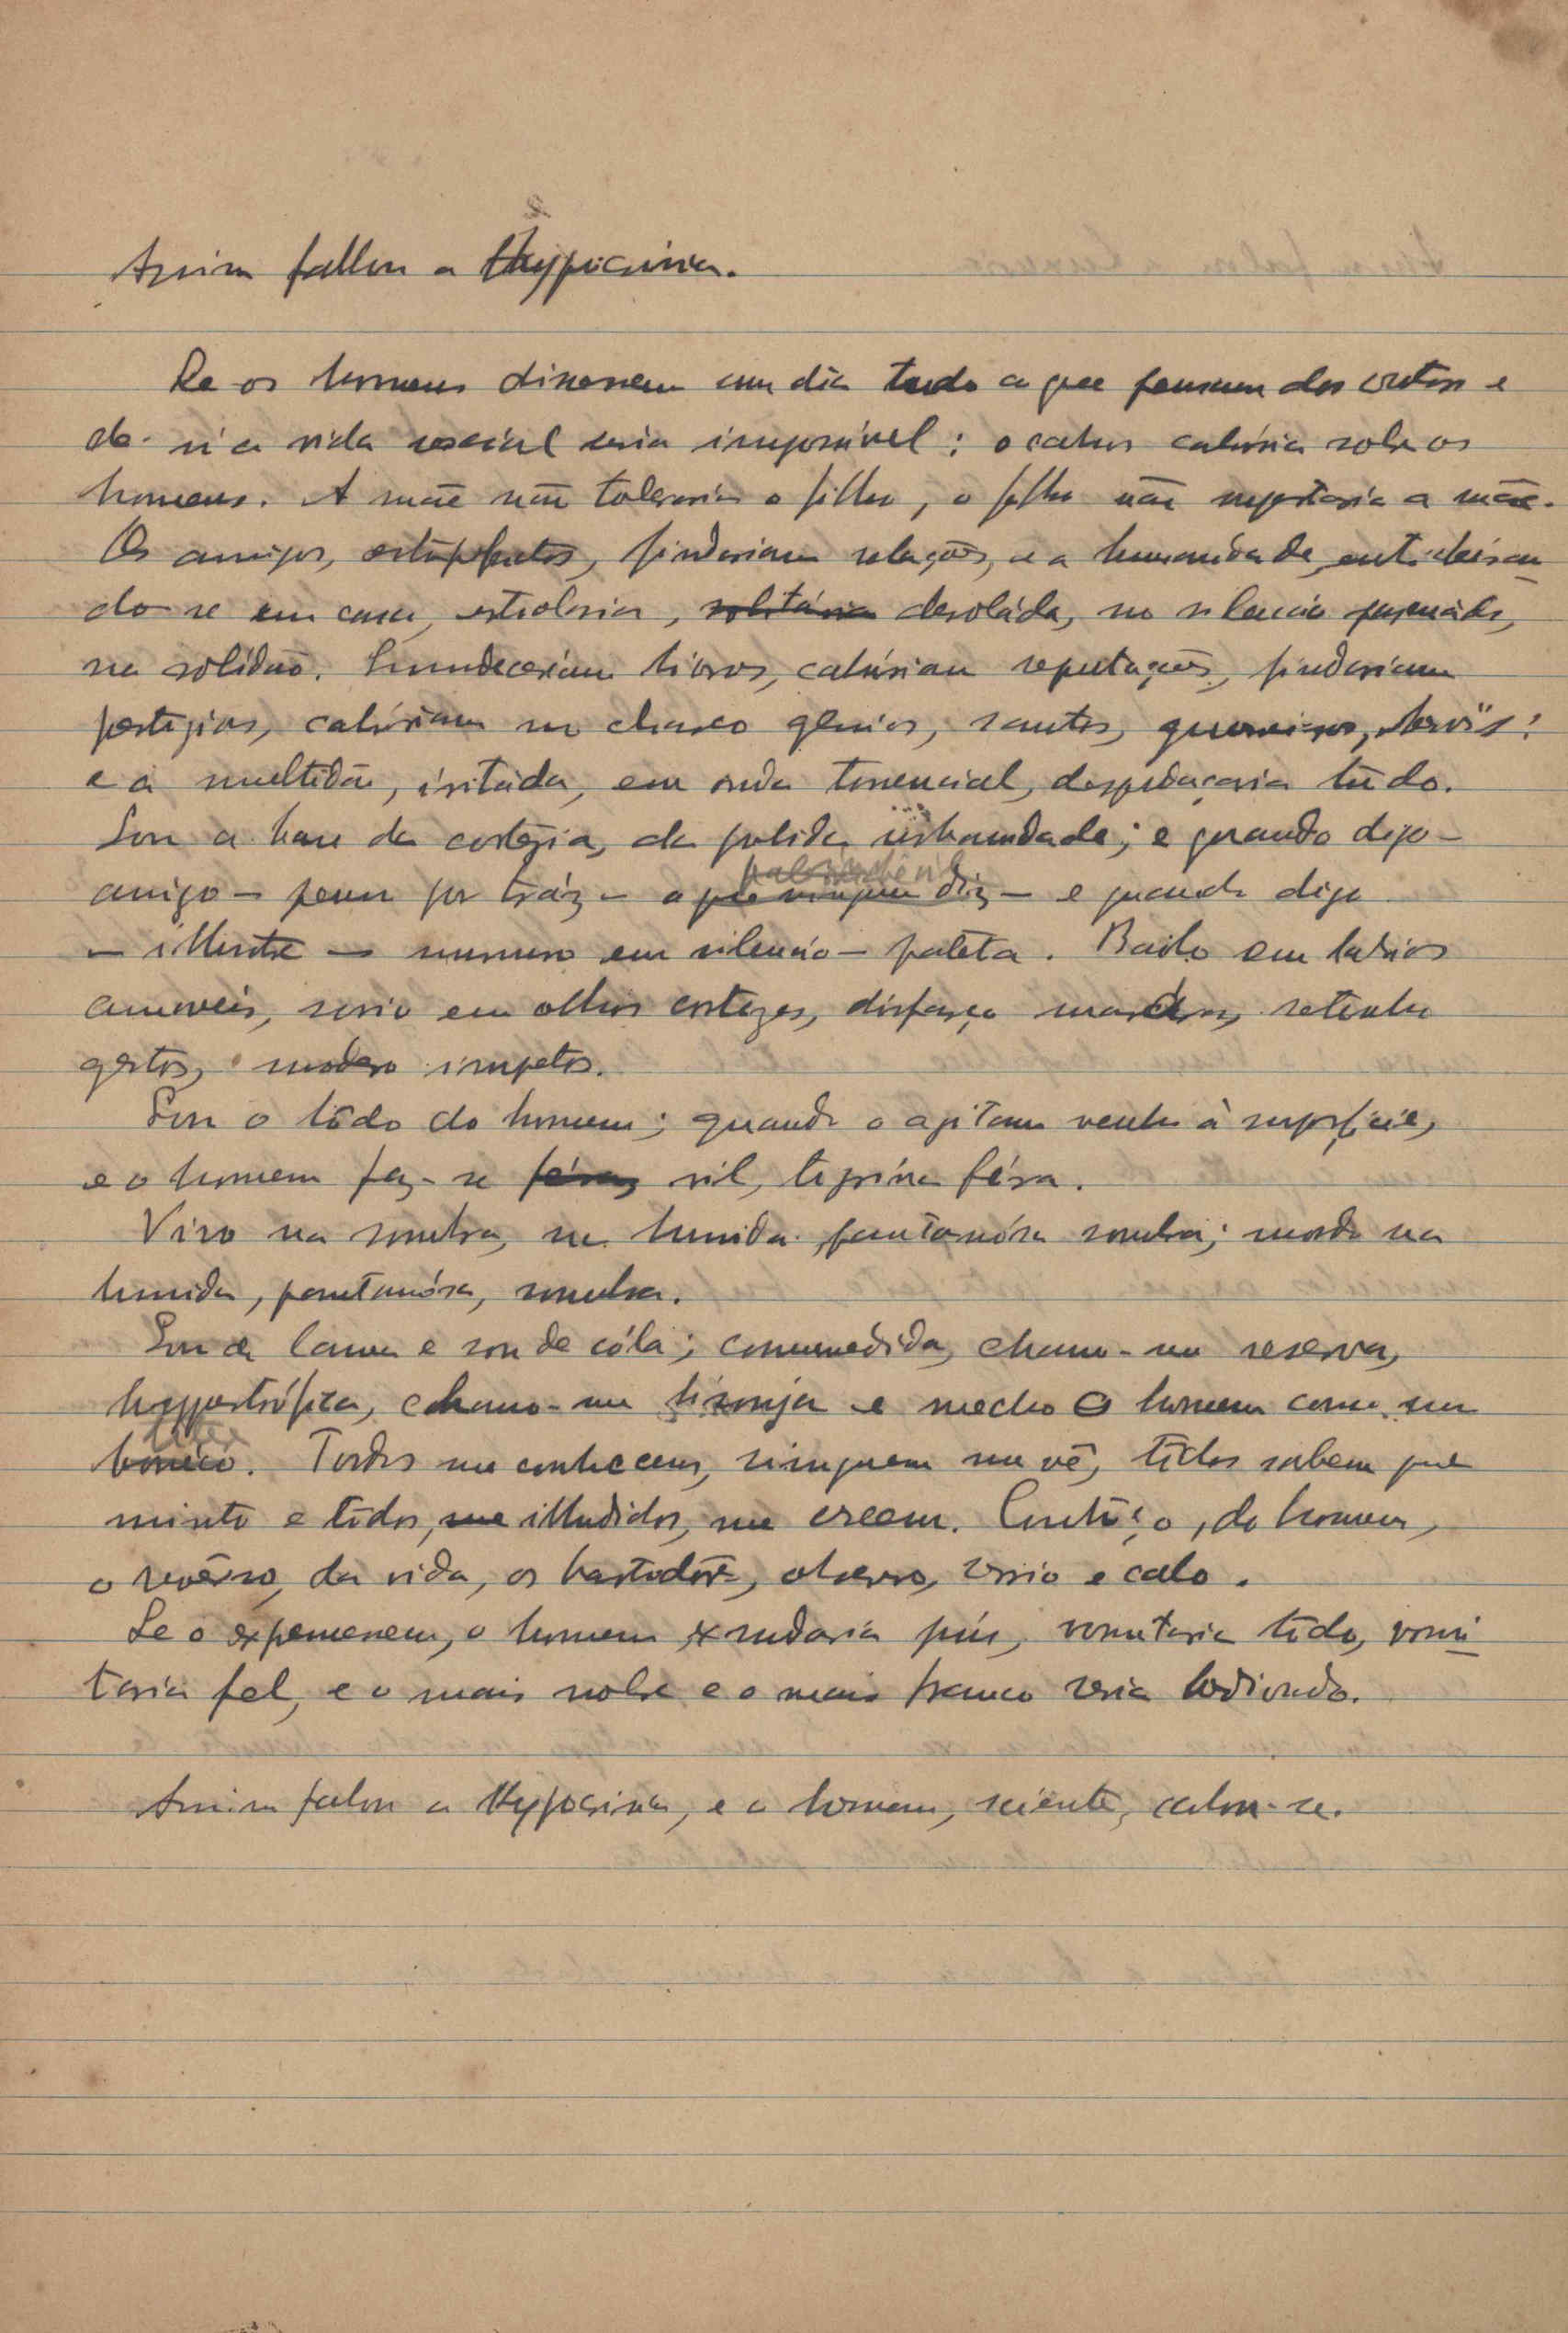 Assim fallou a Hypocrisia.
Se os homens dissessem um dia tudo o que pensam dos outros e
de si a vida social seria impossivel: o cahos cahiria sobre os
homens. A mãe não toleraria o filho, o filho não supportaria a mãe.
Os amigos, estupefactos, findariam relações, e a humanidade,
do-se em casa, estiolaria, solitária desoláda, no silencio
na solidão. Emudeceriam livros, cahiriam reputações, findariam
prestigios, cahiriam no charco genios, santos, guerreiros, heróis:
e a multidão, iritáda, em onda torrencial, despedaçaria tudo.
Sou a base da cortezia, da polida urbanidade; e quando digo –
amigo – penso por tráz – o que ninguem diz – e quando digo
– illustre – murmuro em silencio – patéta. Bailo em labios
amaveis, sorrio em olhos cortezes, disfarço  retenho
gestos, modero impetos.
Sou o lôdo do homem; quando o agitam venho à superficie,
e o homem faz-se féra, vil, tigrina féra.
Vivo na sombra, na humida pantanósa sombra; mordo na
humida, pantanósa, sombra.
Sou de lama e sou de cóla; commedida, chamo-me reserva,
hyppertrófica, chamo-me lisonja e mecho o homem como um
bonéco. Todos me conhecem, ninguem me vê, tôdos sabem que
minto e tôdos, me illudidos, me creem. Conheço, do homem,
o revérso, da vida, os bastidôres, observo, sorrio e calo.
Se o expremessem, o homem exsudaria pús, vomitaria lôdo, vomi
taria fel, e o mais nobre e o mais franco seria hediondo.
Assim falou a Hypocrisia, e o homem, sciente, calou-se.